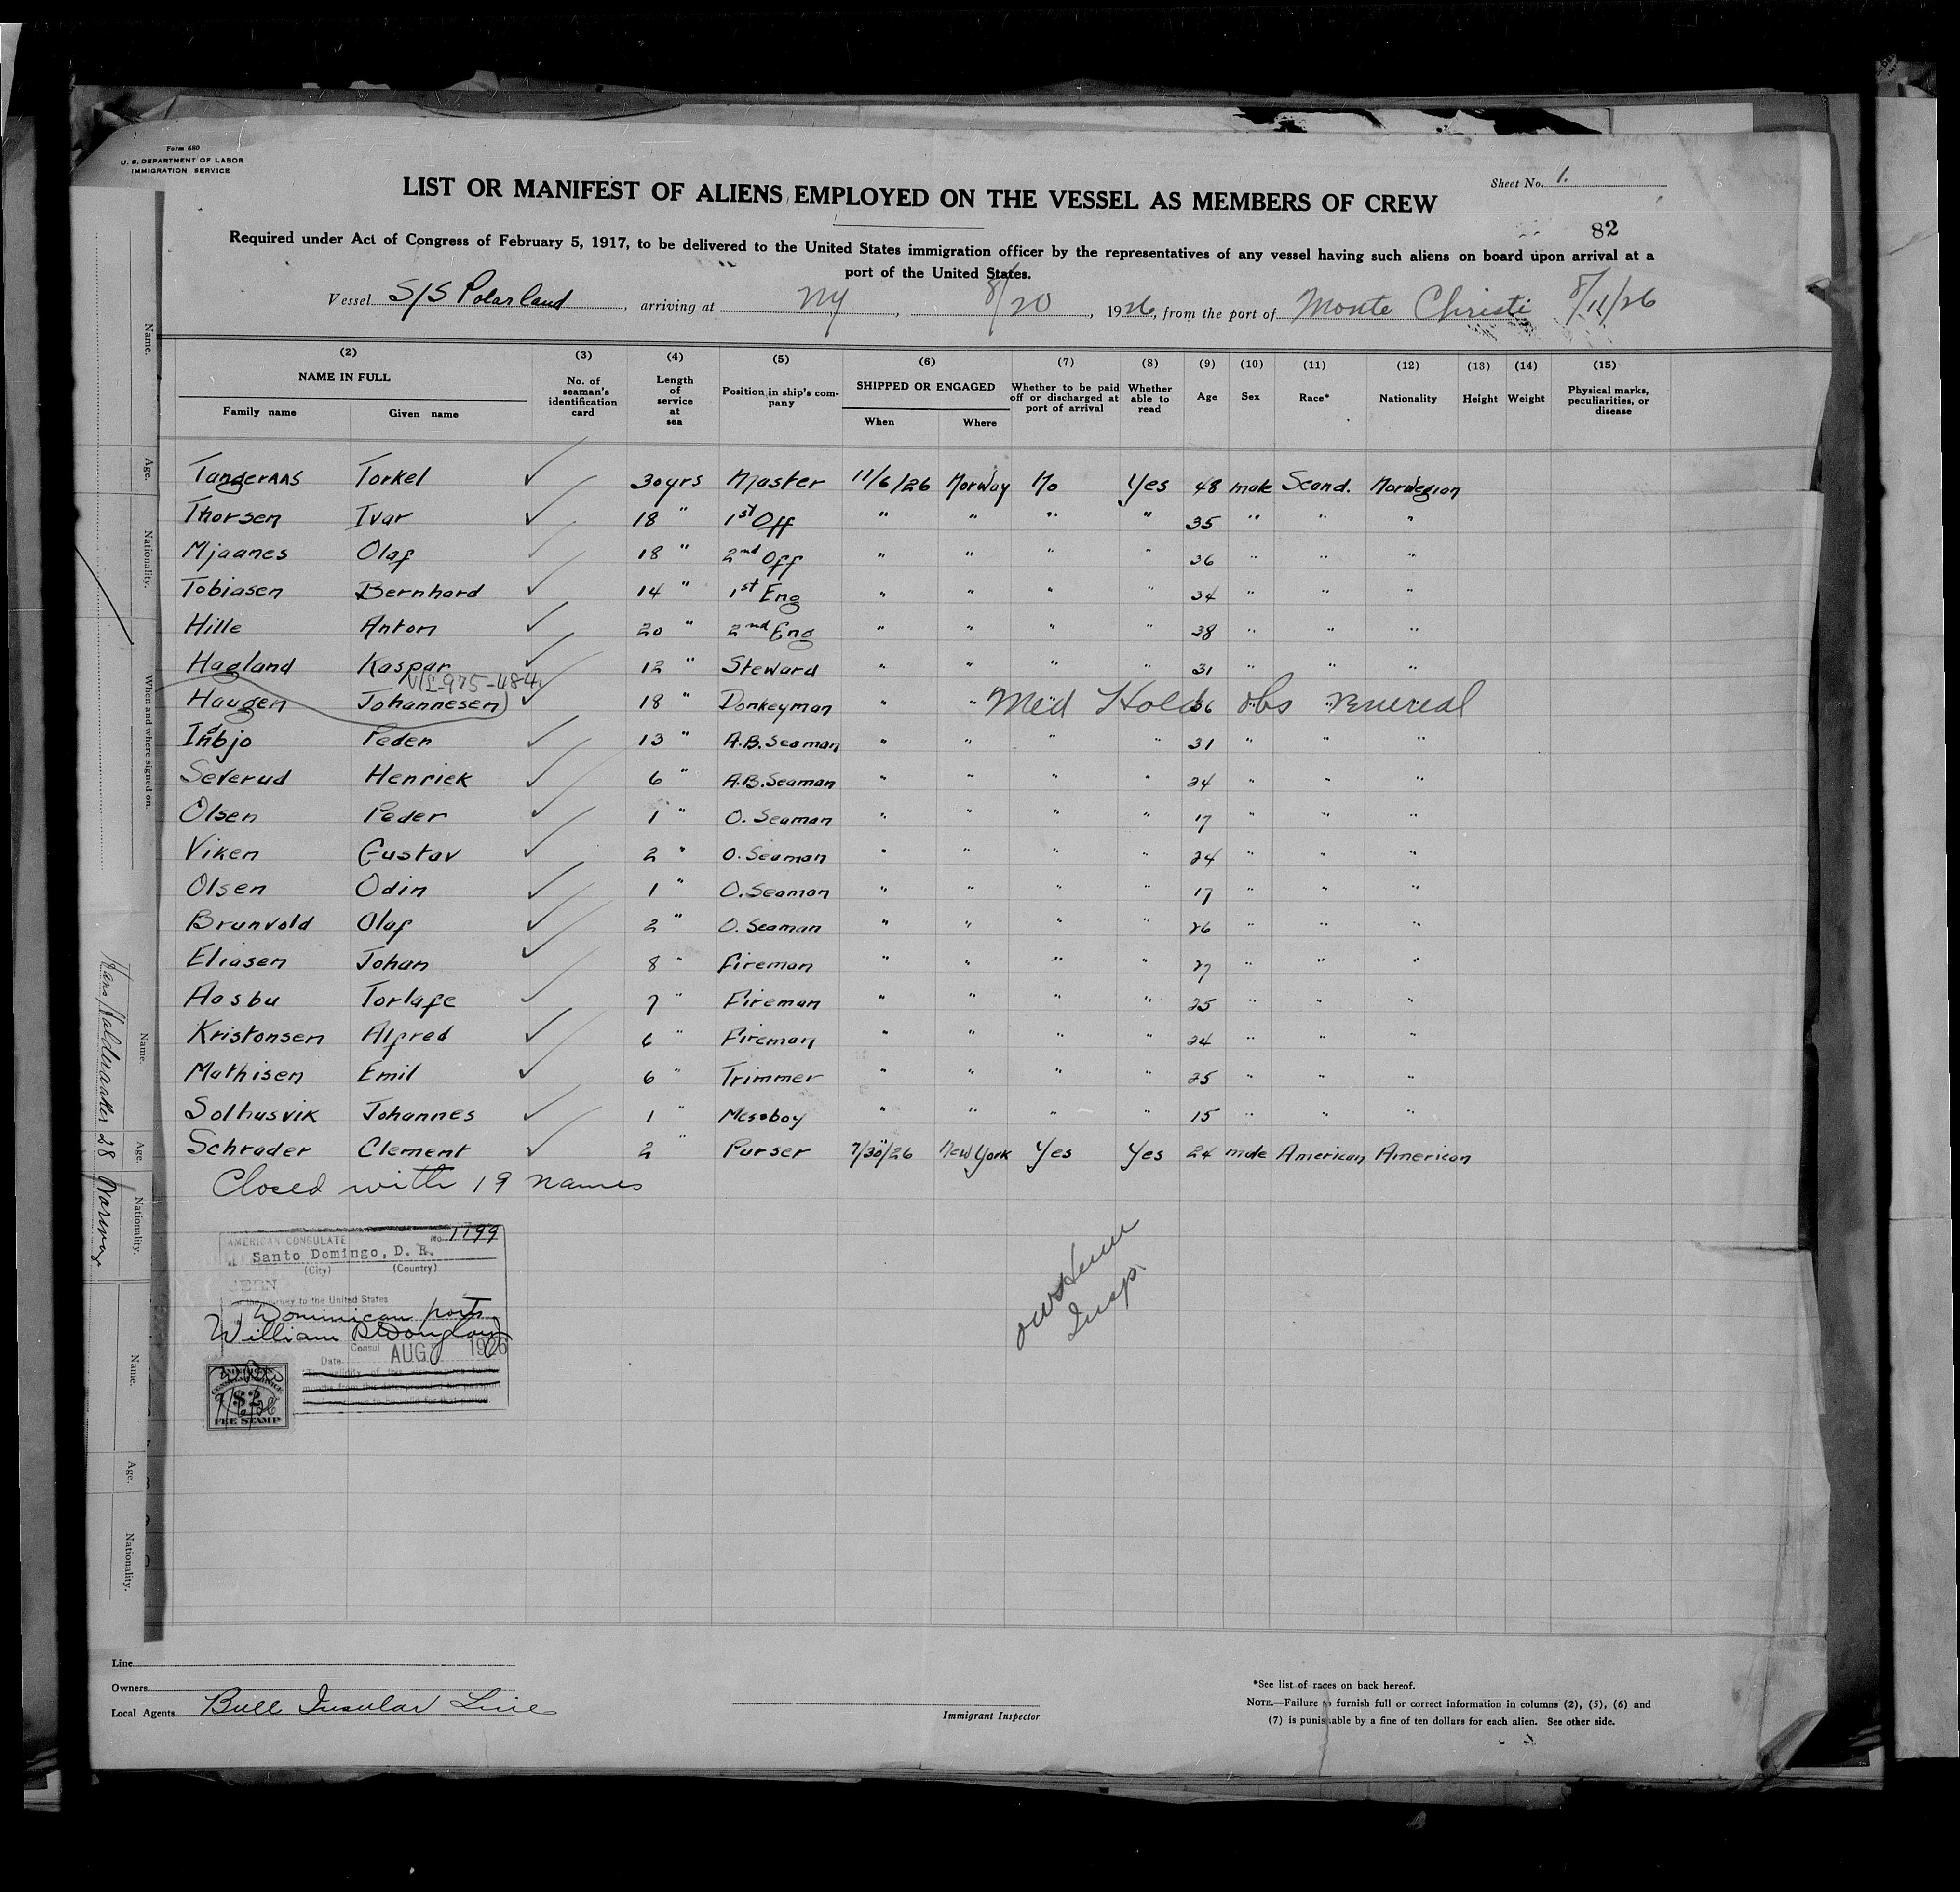 Form 680
U. S. DEPARTMENT OF LABOR
IMMIGRATION SERVICE
Sheet No. 1.
LIST OR MANIFEST OF ALIENS EMPLOYED ON THE VESSEL AS MEMBERS OF CREW
82
Required under Act of Congress of February 5, 1917, to be delivered to the United States immigration officer by the representatives of any vessel having such aliens on board upon arrival at a
port of the United States.
Vessel S/S Polarland, arriving at NY, 8/20, 1926, from the port of Monte Christi 8/11/26
(2) (3) (4) (5) (6) (7) (8) (9) (10) (11) (12) (13) (14) (15)
NAME IN FULL No. of seaman's identification card Length of service at sea Position in ship's company SHIPPED OR ENGAGED Whether to be paid off or discharged at port of arrival Whether able to read Age Sex Race* Nationality Height Weight Physical marks, peculiarities, or disease
Family name Given name When Where
Tangeraas Torkel ✓ 30 yrs Master 11/6/26 Norway No Yes 48 male Scand. Norwegian
Thorsen Ivar ✓ 18 " 1st Off " " " " 35 " " "
Mjaanes Olaf ✓ 18 " 2nd Off " " " " 36 " " "
Tobiasen Bernhard ✓ 14 " 1st Eng " " " " 34 " " "
Hille Anton ✓ 20 " 2nd Eng " " " " 38 " " "
Hagland Kaspar ✓ 12 " Steward " " " " 31 " " "
975-484
Haugen Johannesen ✓ 18 " Donkeyman " " Med Hold 36 obs venereal
Peder ✓ 13 " A.B. Seaman " " " " 31 " " "
Severud Henriek ✓ 6 " A.B. Seaman " " " " 24 " " "
Olsen Peder ✓ 1 " O. Seaman " " " " 17 " " "
Viken Gustav ✓ 2 " O. Seaman " " " " 24 " " "
Olsen Odin ✓ 1 " O. Seaman " " " " 17 " " "
Brunvold Olaf ✓ 2 " O. Seaman " " " " 26 " " "
Eliasen Johan ✓ 8 " Fireman " " " " 27 " " "
Aasbu Torlafe ✓ 7 " Fireman " " " " 25 " " "
Kristonsen Alfred ✓ 6 " Fireman " " " " 24 " " "
Mathisen Emil ✓ 6 " Trimmer " " " " 25 " " "
Solhusvik Johannes ✓ 1 " Messboy " " " " 15 " " "
Schrader Clement ✓ 2 " Purser 7/30/26 New York Yes Yes 24 male American American
Closed with 19 names
AMERICAN CONSULATE No. 1199
Santo Domingo, D. R.
(City) (Country)
to the United States
Dominican ports
William
Consul
Date AUG 1926
FEE STAMP
Insp.
Name.
Age.
Nationality.
When and where signed on.
Name.
Age.
Nationality.
Name.
Age.
Nationality.
Hans 28
Line
Owners
Local Agents Bull Insular Line
Immigrant Inspector
*See list of races on back hereof.
NOTE.—Failure to furnish full or correct information in columns (2), (5), (6) and
(7) is punishable by a fine of ten dollars for each alien. See other side.